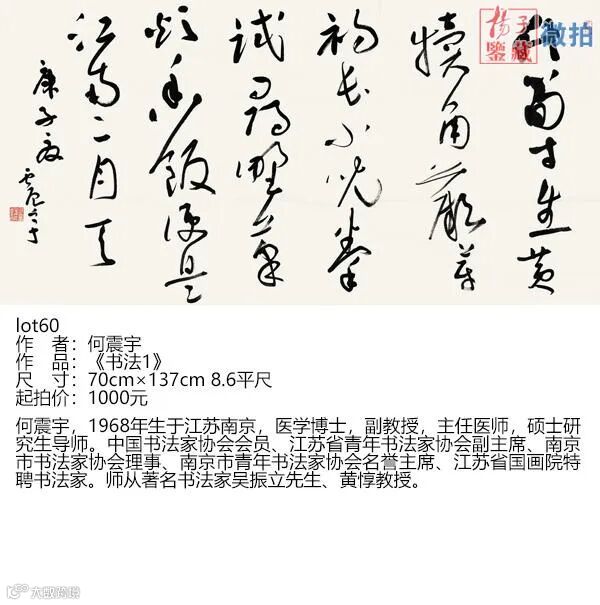 竹笋才生黄
犊角蕨芽
初长小儿拳
试寻野菜
炊香饭便是
江南二月天
庚子夏
震宇
揚子
鑒藏
微拍
lot60
作 者：何震宇
作 品：《书法1》
尺 寸：70cm×137cm 8.6平尺
起拍价：1000元
何震宇，1968年生于江苏南京，医学博士，副教授，主任医师，硕士研
究生导师。中国书法家协会会员、江苏省青年书法家协会副主席、南京
市书法家协会理事、南京市青年书法家协会名誉主席、江苏省国画院特
聘书法家。师从著名书法家吴振立先生、黄惇教授。
大数跨境